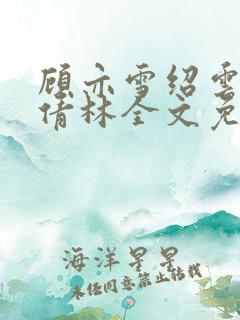 顾亦雪绍雲
倩林全文免
海洋星星
未经同意禁止转载